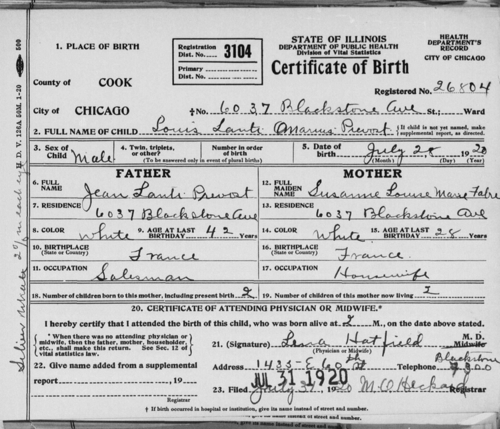 STATE OF ILLINOIS
DEPARTMENT OF PUBLIC HEALTH
Division of Vital Statistics
Certificate of Birth
HEALTH DEPARTMENT'S RECORD
CITY OF CHICAGO
1. PLACE OF BIRTH
Registration Dist. No. 3104
Primary Dist. No.
Registered No. 26804
County of COOK
City of CHICAGO †No. 6037 Blackstone Ave St.; Ward
2. FULL NAME OF CHILD Louis Lanti Marius Prevost { If child is not yet named, make supplemental report, as directed.
3. Sex of Child Male
4. Twin, triplets, or other?
Number in order of birth
(To be answered only in event of plural birth)
5. Date of Birth July 28 1920
(Month) (Day) (Year)
FATHER
MOTHER
6. FULL NAME Jean Lanti Prevost
12. FULL MAIDEN NAME Susanne Louise Marie Fabre
7. RESIDENCE 6037 Blackstone Ave
13. RESIDENCE 6037 Blackstone Ave
8. COLOR White 9. AGE AT LAST BIRTHDAY 42 Years
14. COLOR White 15. AGE AT LAST BIRTHDAY 28 Years
10. BIRTHPLACE (State or Country) France
16. BIRTHPLACE (State or Country) France
11. OCCUPATION Salesman
17. OCCUPATION Housewife
18. Number of children born to this mother, including present birth 2
19. Number of children of this mother now living 2
20. CERTIFICATE OF ATTENDING PHYSICIAN OR MIDWIFE.*
I hereby certify that I attended the birth of this child, who was born alive at M., on the date above stated.
{ * When there was no attending physician or midwife, then the father, mother, householder, etc., shall make this return. See Sec. 12 of vital statistics law. }
21. (Signature) Hatfield M. D. Midwife
(Physician or Midwife)
22. Give name added from a supplemental report , 19
Address 1435 E 60th St Telephone Blackstone
JUL 31 1920
23. Filed 1920 Registrar
† If birth occurred in hospital or institution, give its name instead of street and number.